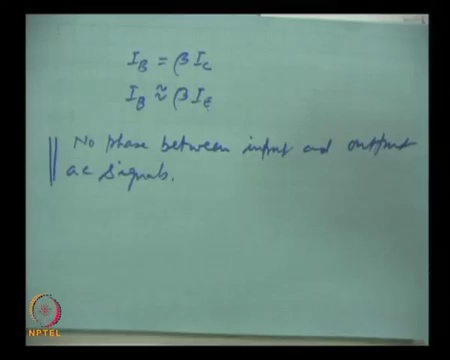 I_B = βI_C
I_B ≈ βI_E
No phase between input and output
ac signals.
NPTEL